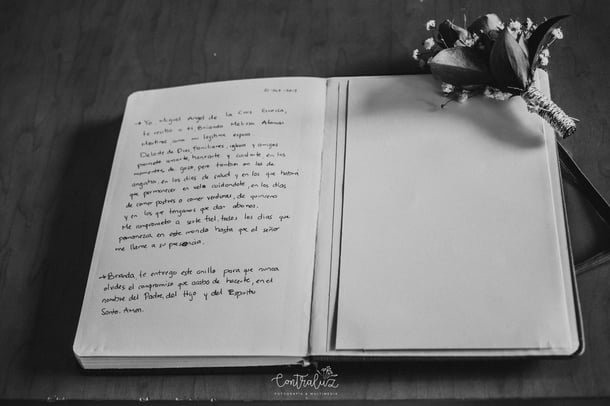 → Yo Miguel Angel de la Cruz
te recibo a ti, Brianda Melissa
como mi legítima esposa.
Delante de Dios, familiares, iglesia y amigos
prometo amarte, honrarte y cuidarte en los
momentos de gozo, pero también en los de
angustia, en los días de salud y en los que habrá
que permanecer en vela cuidándote, en los días
de comer postres o comer verduras, de quincena
y en los que tengamos que dar abonos.
Me comprometo a serte fiel, todos los días que
permanezca en este mundo hasta que el señor
me llame a su presencia.
→ Brianda, te entrego este anillo para que nunca
olvides el compromiso que acabo de hacerte, en el
nombre del Padre, del Hijo y del Espíritu
Santo. Amén.
Contraluz
FOTOGRAFÍA & MULTIMEDIA